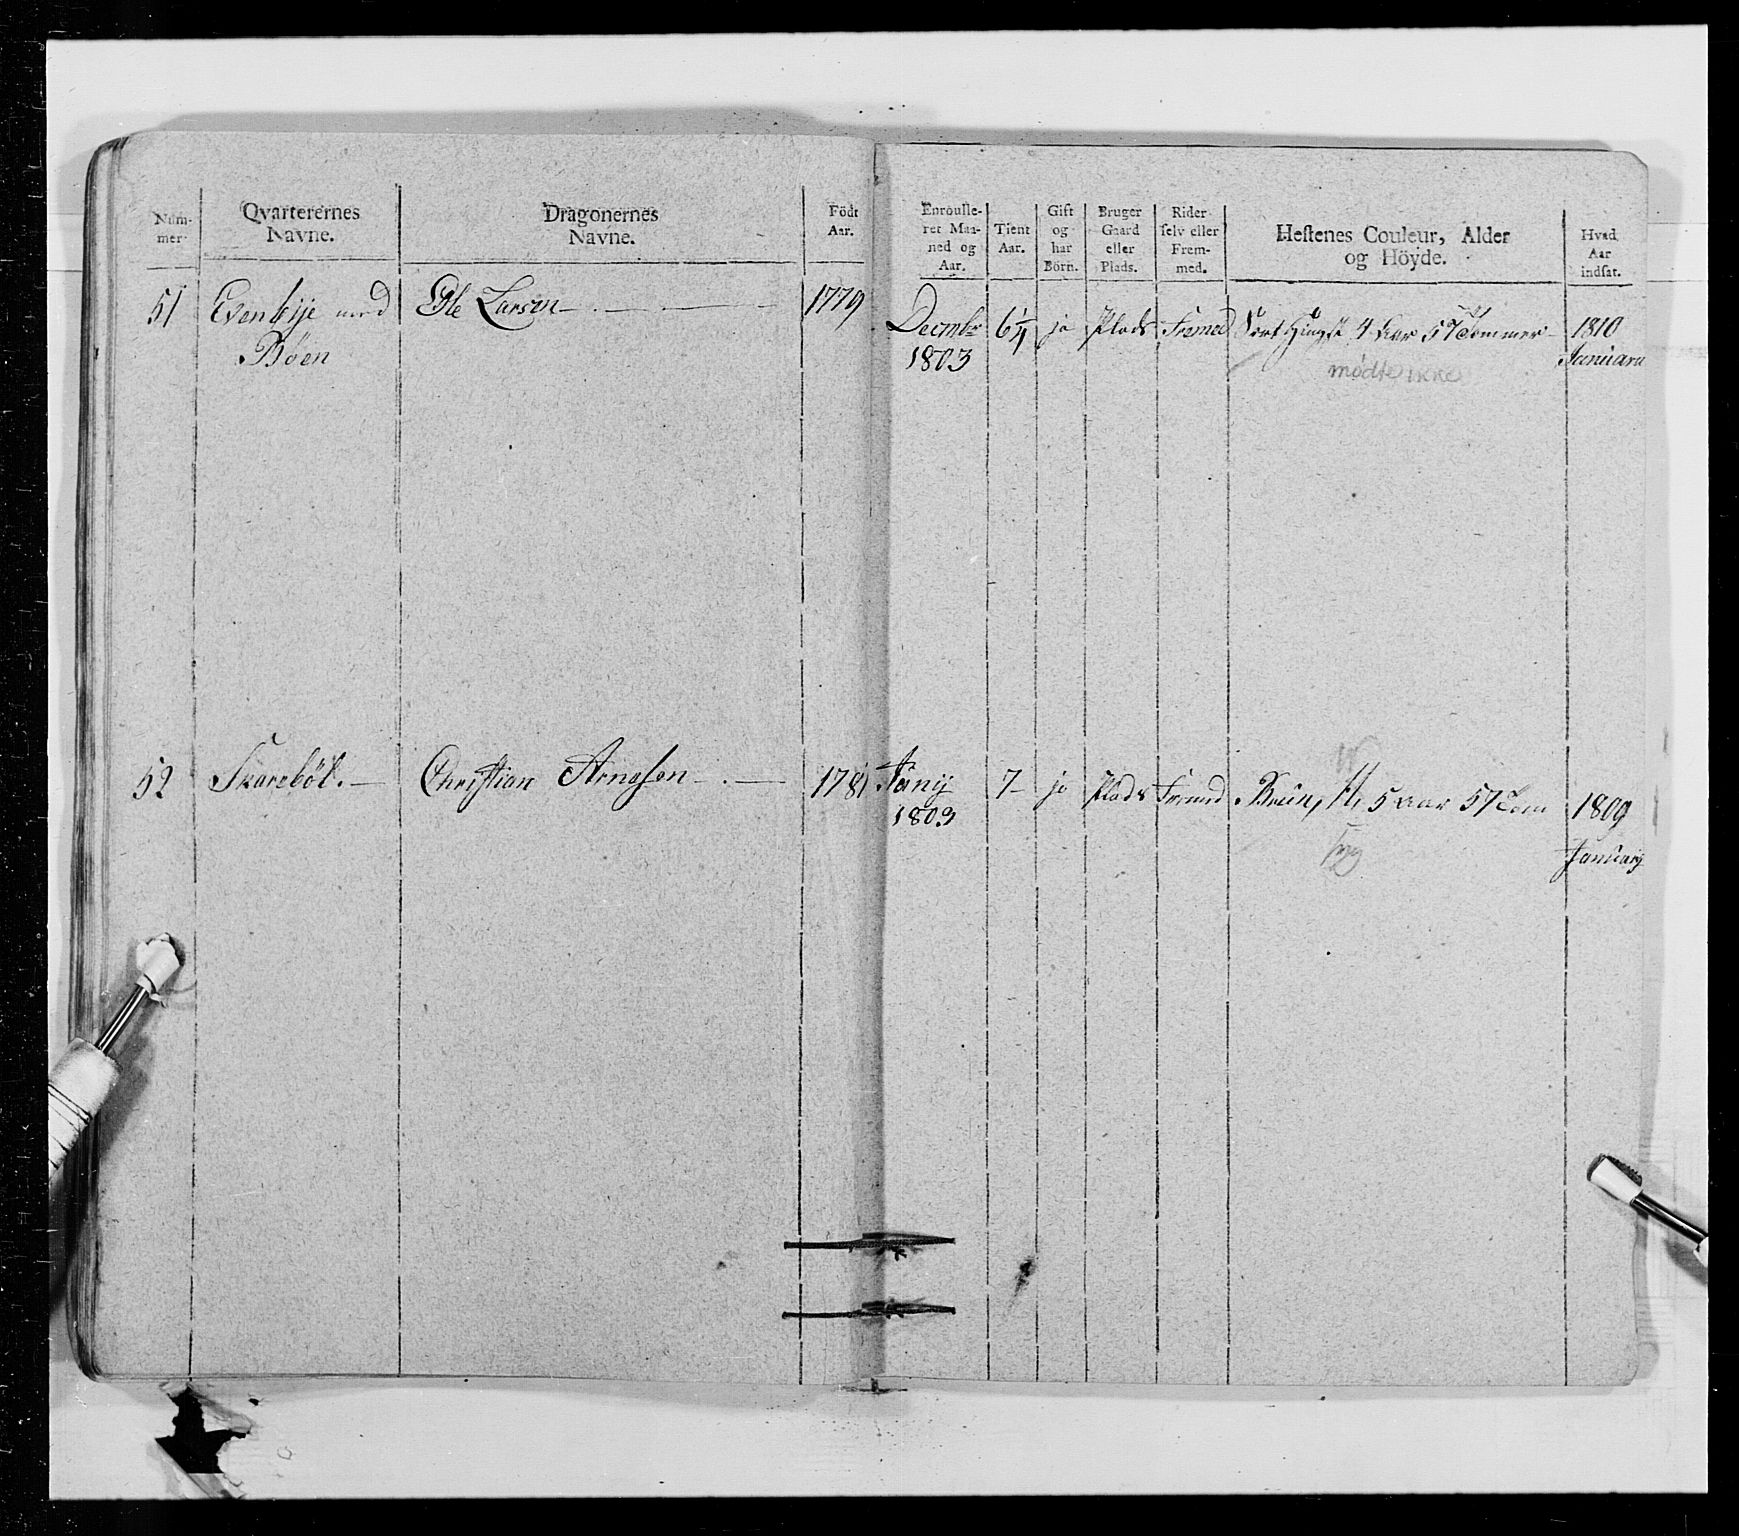 Num-
mer
Qvarterernes
Navne.
Dragonernes
Navne.
Födt
Aar.
Enroulle-
ret Maa-
ned og
Aar.
Tient
Aar.
Gift
og
har
Börn.
Bruger
Gaard
eller
Plads.
Rider
selv eller
Frem-
med.
Hestenes Couleur, Alder
og Höyde.
Hvad
Aar
indsat.
51 Evenbÿe med Ole Larsen 1779 Decmbr 6¼ ja Plads Fremed Sort Hingst 4 Aar 57 Tommer 1810
Bøen 1803 Januari
mødte ikke
52 Skarebøl. Christian Arnesen 1781 Janÿ 7 ja Plads Fremed Brun, H, 5 aar 57 Tom 1809
1803
syg
Januarÿ